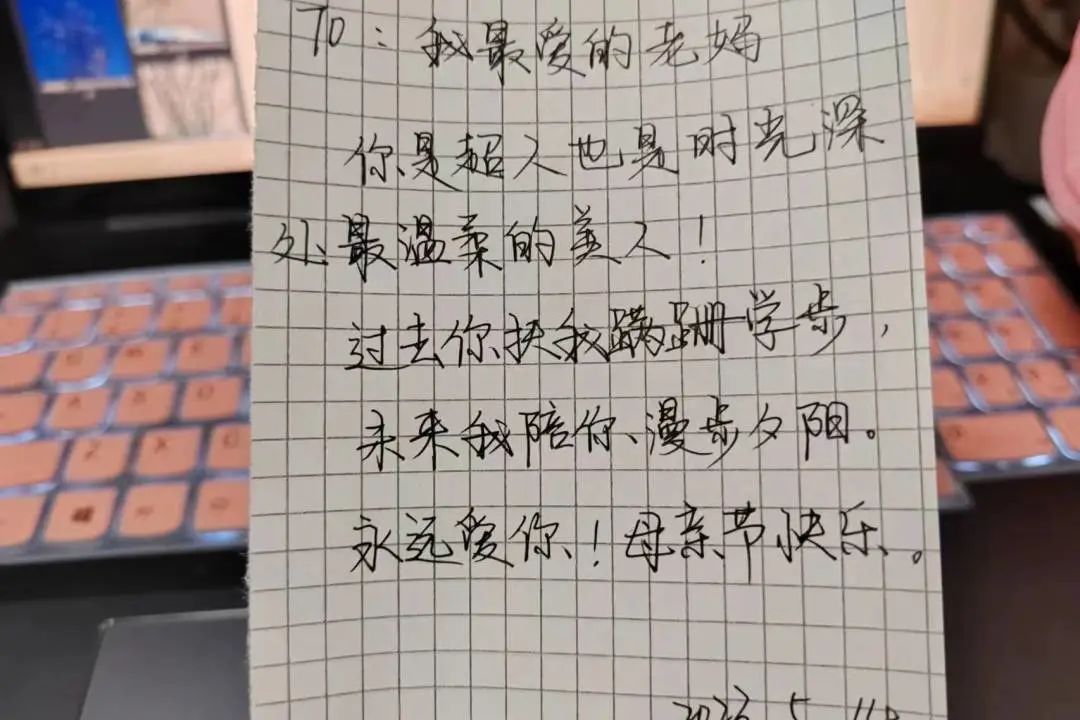 TO：我最爱的老妈
你是超人也是时光深
处最温柔的美人！
过去你扶我蹒跚学步，
未来我陪你漫步夕阳。
永远爱你！母亲节快乐。